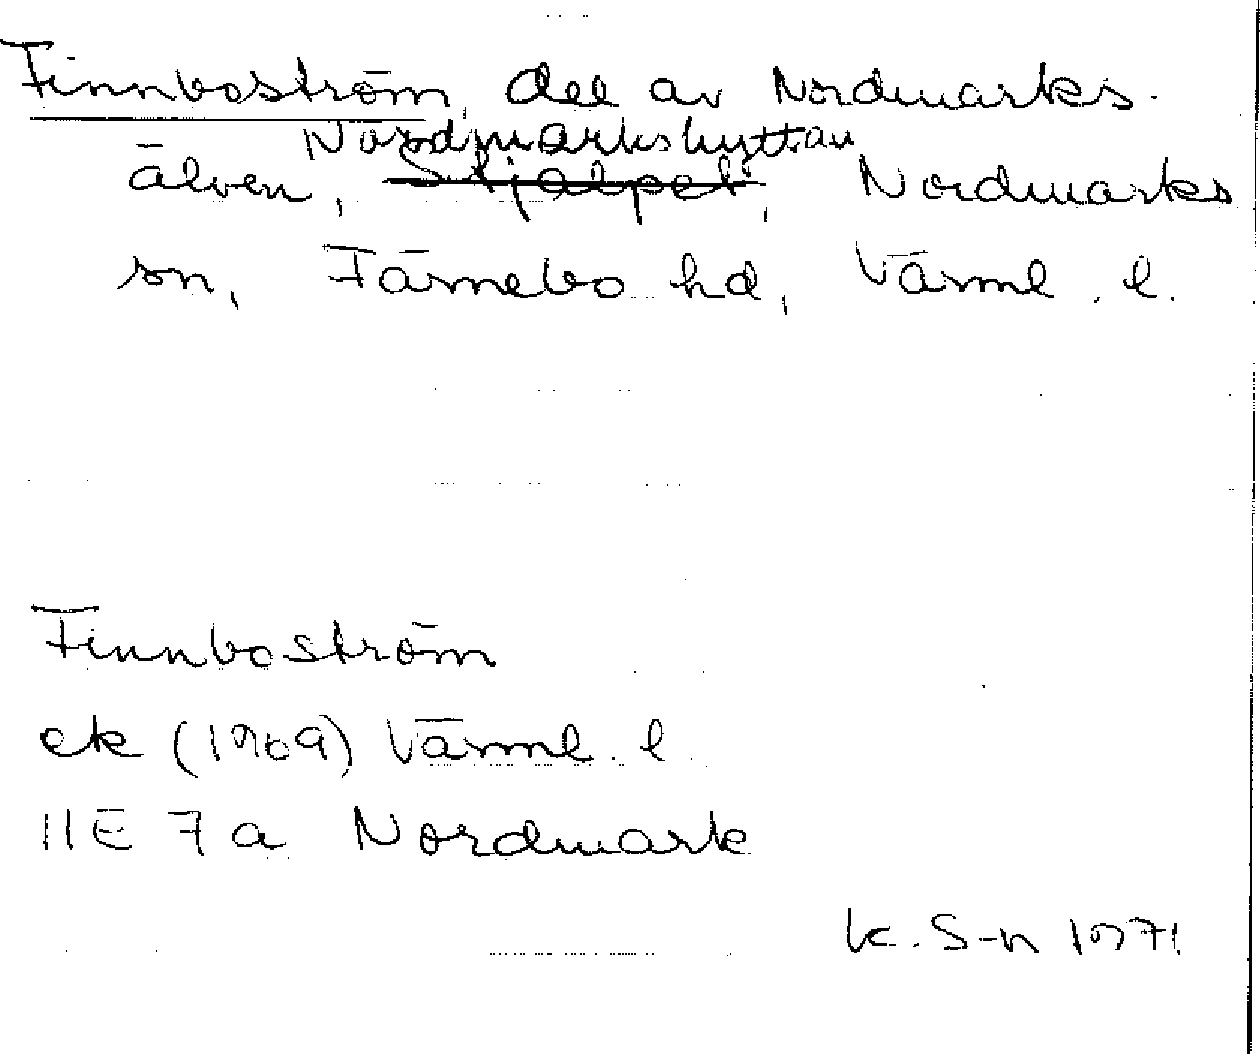 Finnboström, del av Nordmarks-
Nordmarkshyttan
älven, Stjälpet, Nordmarks
sn, Färnebo hd, Värml. l.
Finnboström
ek (1969) Värml. l.
11E 7a Nordmark
K. S-n 1971